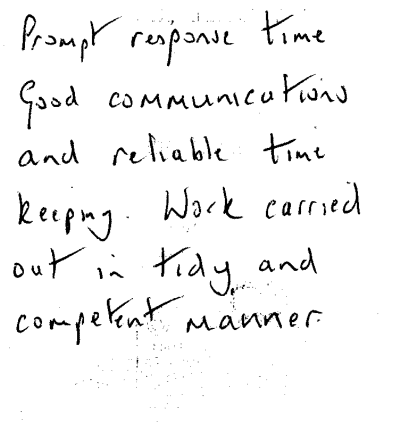 Prompt response time
Good communications
and reliable time
keeping. Work carried
out in tidy and
competent manner.